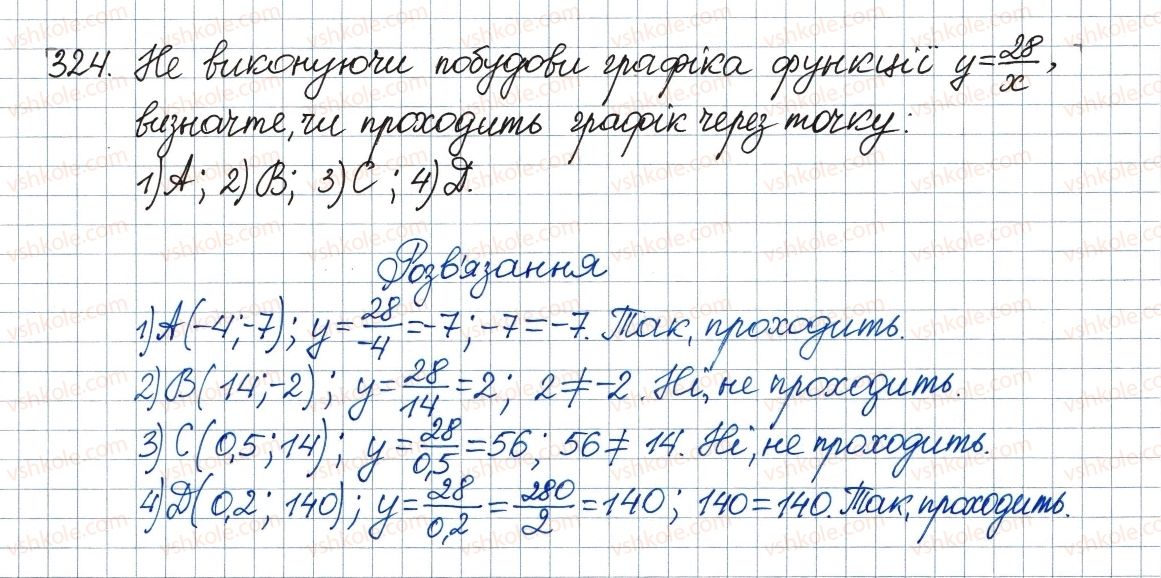 324. Не виконуючи побудови графіка функції y=28/x,
визначте, чи проходить графік через точку:
1) A; 2) B; 3) C; 4) D.
Розв'язання
1) A(-4;-7); y=28/-4=-7; -7=-7. Так, проходить.
2) B(14;-2); y=28/14=2; 2≠-2. Ні, не проходить.
3) C(0,5;14); y=28/0,5=56; 56≠14. Ні, не проходить.
4) D(0,2; 140); y=28/0,2=280/2=140; 140=140. Так, проходить.